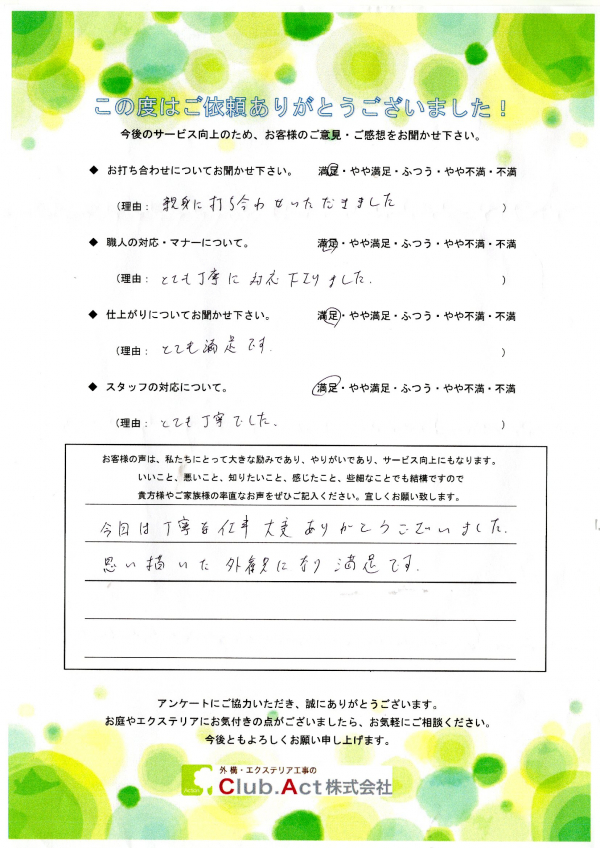 この度はご依頼ありがとうございました！
今後のサービス向上のため、お客様のご意見・ご感想をお聞かせ下さい。
◆ お打ち合わせについてお聞かせ下さい。 満足・やや満足・ふつう・やや不満・不満
（理由： 親身に打ち合わせいただきました ）
◆ 職人の対応・マナーについて。 満足・やや満足・ふつう・やや不満・不満
（理由： とても丁寧に対応下さりました. ）
◆ 仕上がりについてお聞かせ下さい。 満足・やや満足・ふつう・やや不満・不満
（理由： とても満足です. ）
◆ スタッフの対応について。 満足・やや満足・ふつう・やや不満・不満
（理由： とても丁寧でした. ）
お客様の声は、私たちにとって大きな励みであり、やりがいであり、サービス向上にもなります。
いいこと、悪いこと、知りたいこと、感じたこと、些細なことでも結構ですので
貴方様やご家族様の率直なお声をぜひご記入ください。宜しくお願い致します。
今回は丁寧な仕事大変ありがとうございました.
思い描いた外観になり満足です.
アンケートにご協力いただき、誠にありがとうございます。
お庭やエクステリアにお気付きの点がございましたら、お気軽にご相談ください。
今後ともよろしくお願い申し上げます。
外構・エクステリア工事の
Club.Act株式会社